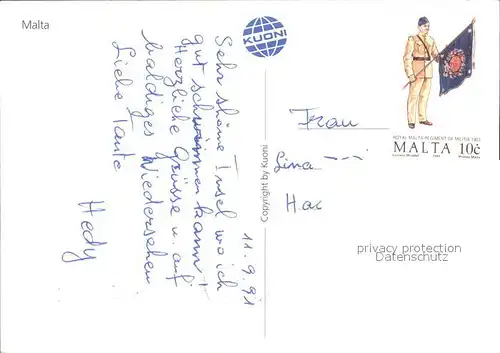 Malta
KUONI
11.9.91
Sehr schöne Insel wo ich
gut schwimmen kann!
Herzliche Grüsse u. auf
baldiges Wiedersehen
Liebe Tante
Hedy
Copyright by Kuoni
Frau
Lina
Hac
ROYAL MALTA REGIMENT OF MILITIA 1903
MALTA 10c
privacy protection
Datenschutz